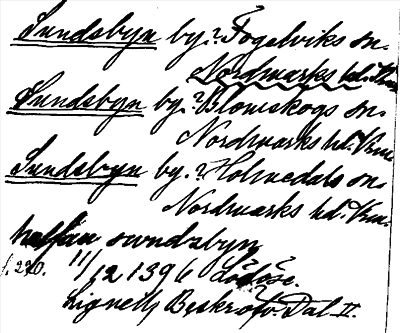 Sundsbyn by. Fogelviks sn.
Nordmarks hd. Vrm.
Sundsbyn by. Blomskogs sn.
Nordmarks hd. Vrm.
Sundsbyn by. Holmedals sn.
Nordmarks hd. Vrm.
swndzbyn
11/12 1396 Lödöse.
Lignell, Beskr. öfv. Dal II.